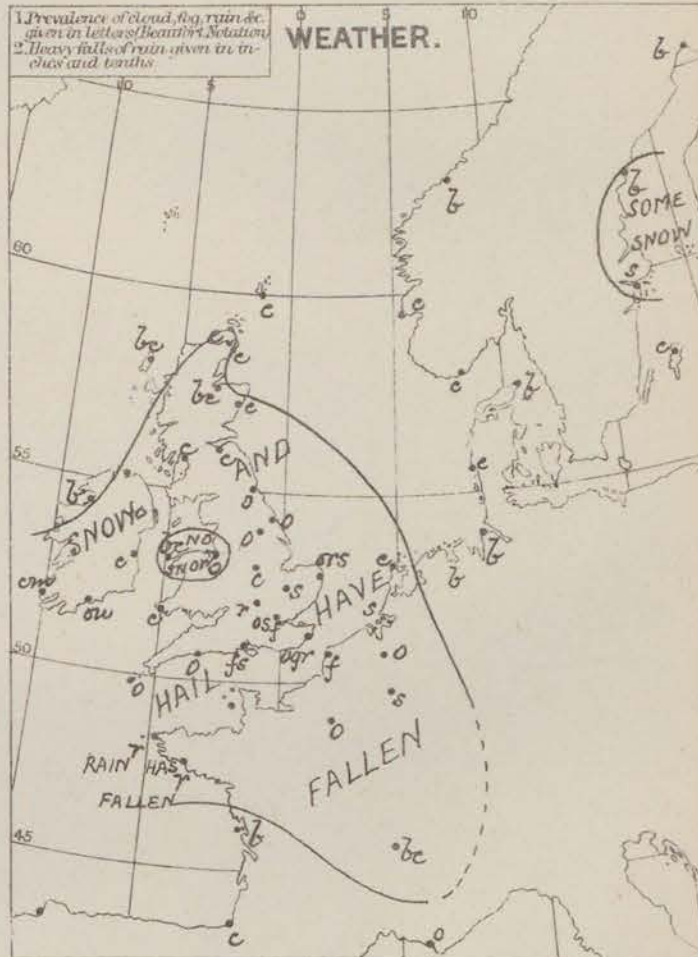 1. Prevalence of cloud, fog, rain &c.
given in letters (Beaufort Notation)
2. Heavy falls of rain given in in-
ches and tenths
WEATHER.
10
5
0
5
10
b
b
b
SOME
SNOW
60
s
c
c
c
bc
c
c
c
bc
c
b
55
c
c
AND
c
b
SNOW
o
o
o
NO
SNOW
o
c
b
b
c
ors
HAVE
c
s
cm
ow
r
c
osf
s
50
o
fs
ogr
f
o
o
HAIL
s
o
RAIN r HAS
r
FALLEN
FALLEN
45
b
bc
c
o